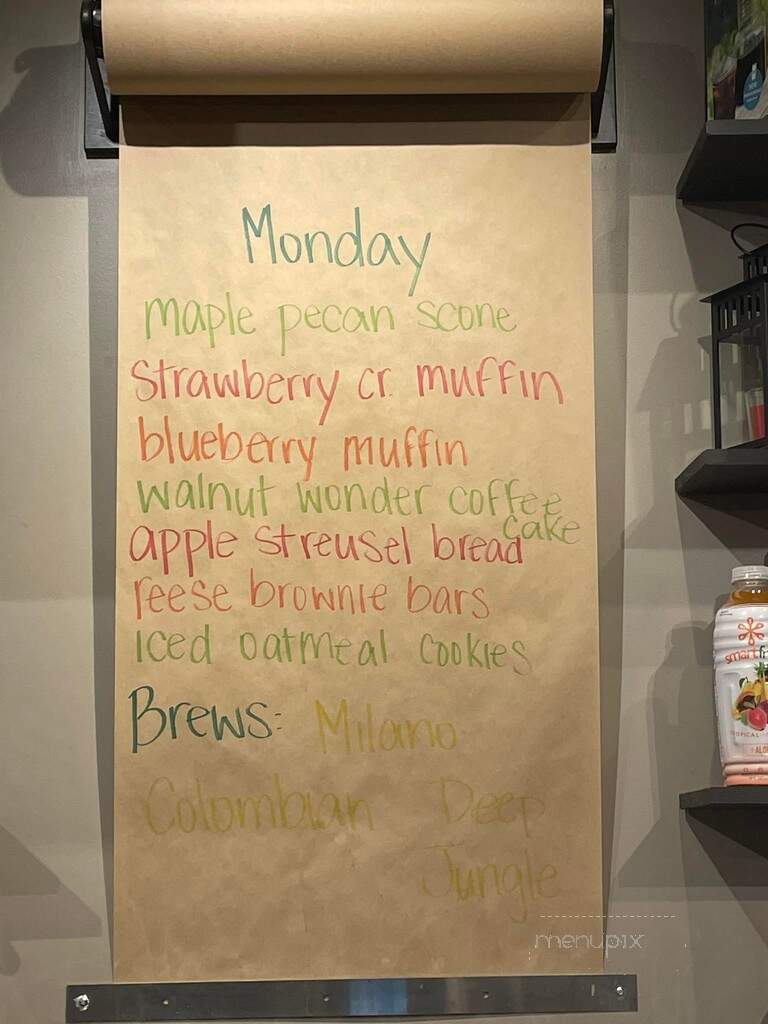 Monday
maple pecan scone
strawberry cr. muffin
blueberry muffin
walnut wonder coffee
cake
apple streusel bread
reese brownie bars
iced oatmeal cookies
Brews: Milano
Colombian Deep
Jungle
smart
menupix